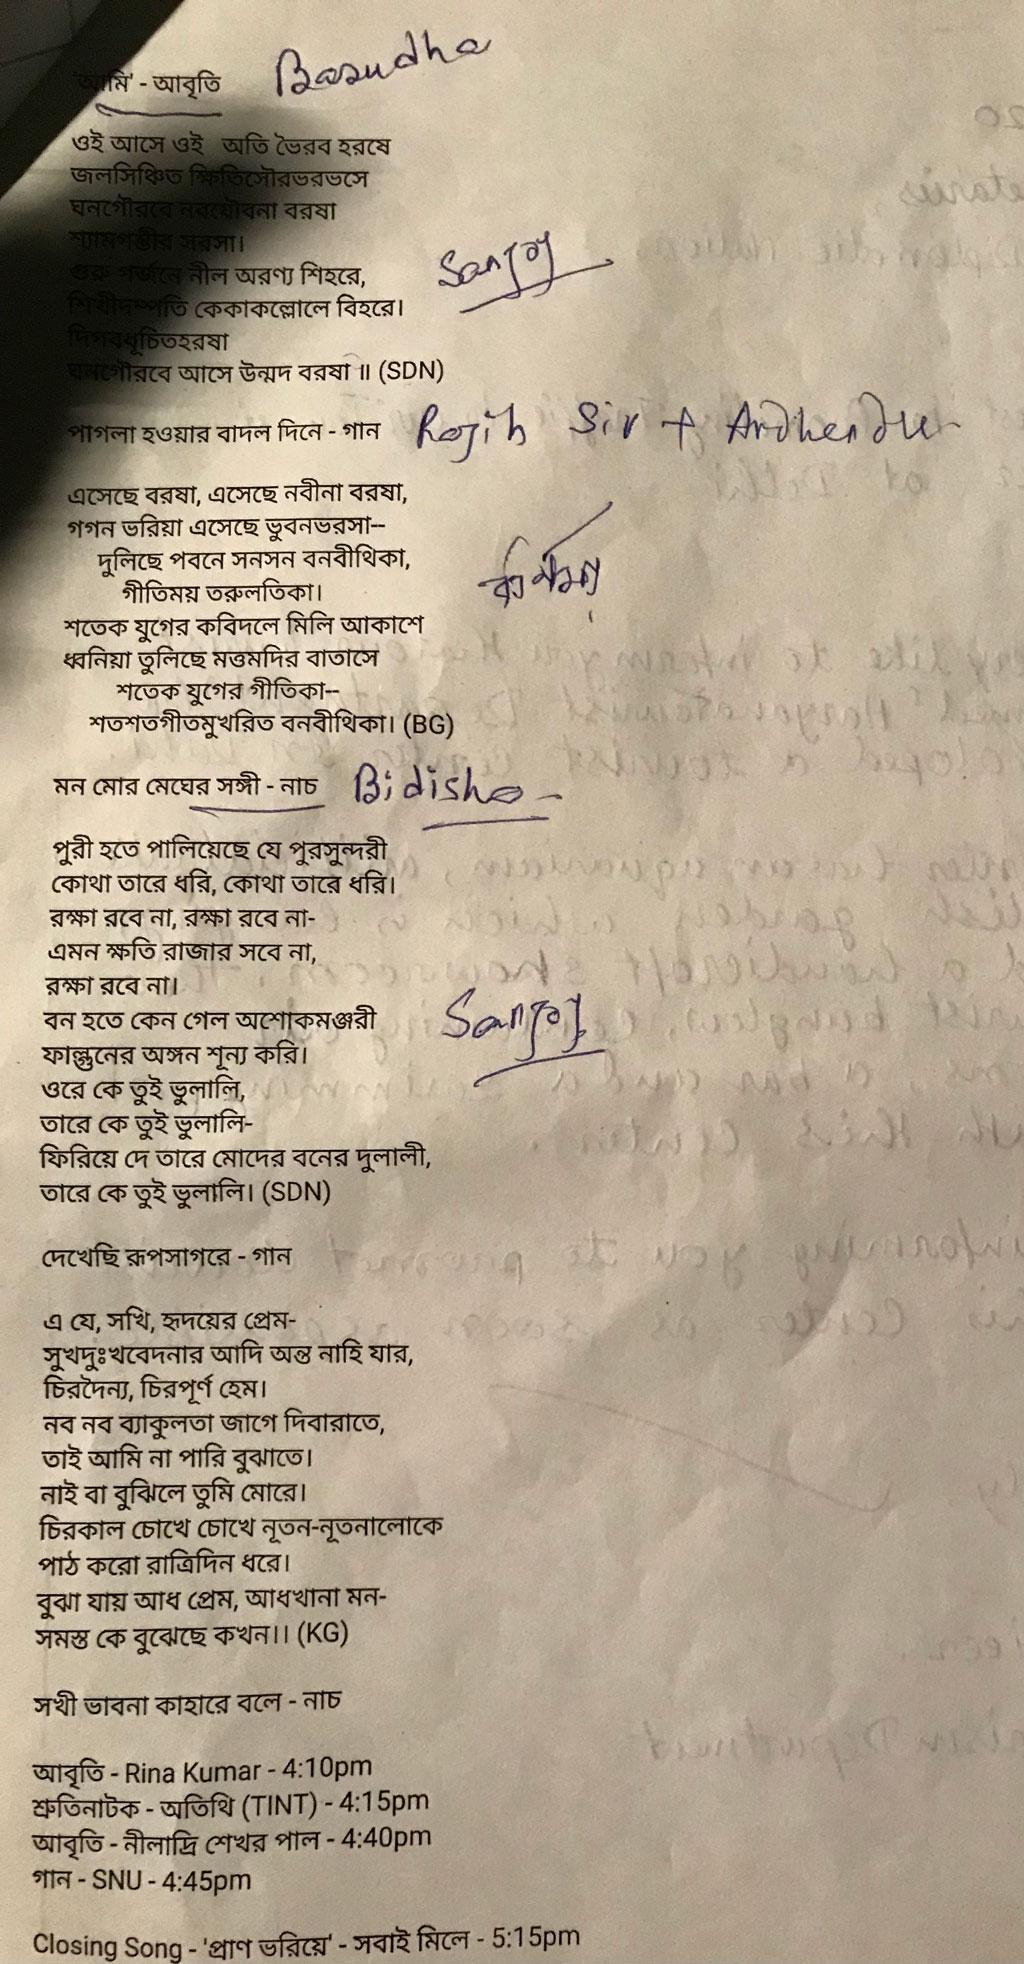 'আমি' - আবৃতি Basudha
ওই আসে ওই অতি ভৈরব হরষে
জলসিঞ্চিত ক্ষিতিসৌরভরভসে
ঘনগৌরবে নবযৌবনা বরষা
শ্যামগম্ভীর সরসা।
গুরু গর্জনে নীল অরণ্য শিহরে,
Sanjoy
শিখীদম্পতি কেকাকল্লোলে বিহরে।
দিগবধূচিতহরষা
ঘনগৌরবে আসে উন্মদ বরষা ॥ (SDN)
পাগলা হওয়ার বাদল দিনে - গান Rajib Sir + Ardhendu
এসেছে বরষা, এসেছে নবীনা বরষা,
গগন ভরিয়া এসেছে ভুবনভরসা--
দুলিছে পবনে সনসন বনবীথিকা,
গীতিময় তরুলতিকা।
শতেক যুগের কবিদলে মিলি আকাশে
ধ্বনিয়া তুলিছে মত্তমদির বাতাসে
শতেক যুগের গীতিকা--
শতশতগীতমুখরিত বনবীথিকা। (BG)
মন মোর মেঘের সঙ্গী - নাচ Bidisha
পুরী হতে পালিয়েছে যে পুরসুন্দরী
কোথা তারে ধরি, কোথা তারে ধরি।
রক্ষা রবে না, রক্ষা রবে না-
এমন ক্ষতি রাজার সবে না,
রক্ষা রবে না।
বন হতে কেন গেল অশোকমঞ্জরী Sanjoy
ফাল্গুনের অঙ্গন শূন্য করি।
ওরে কে তুই ভুলালি,
তারে কে তুই ভুলালি-
ফিরিয়ে দে তারে মোদের বনের দুলালী,
তারে কে তুই ভুলালি। (SDN)
দেখেছি রূপসাগরে - গান
এ যে, সখি, হৃদয়ের প্রেম-
সুখদুঃখবেদনার আদি অন্ত নাহি যার,
চিরদৈন্য, চিরপূর্ণ হেম।
নব নব ব্যাকুলতা জাগে দিবারাতে,
তাই আমি না পারি বুঝাতে।
নাই বা বুঝিলে তুমি মোরে।
চিরকাল চোখে চোখে নূতন-নূতনালোকে
পাঠ করো রাত্রিদিন ধরে।
বুঝা যায় আধ প্রেম, আধখানা মন-
সমস্ত কে বুঝেছে কখন।। (KG)
সখী ভাবনা কাহারে বলে - নাচ
আবৃতি - Rina Kumar - 4:10pm
শ্রুতিনাটক - অতিথি (TINT) - 4:15pm
আবৃতি - নীলাদ্রি শেখর পাল - 4:40pm
গান - SNU - 4:45pm
Closing Song - 'প্রাণ ভরিয়ে' - সবাই মিলে - 5:15pm